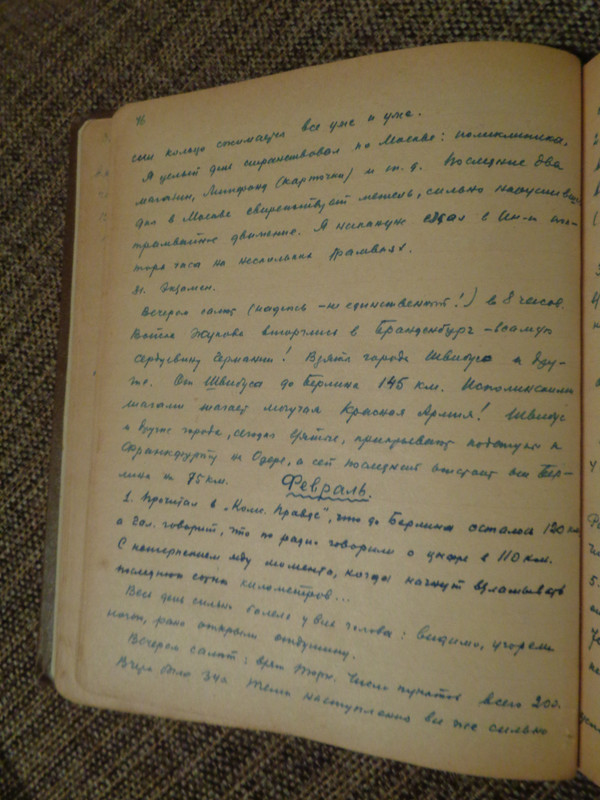 46
кольцо сжимается все уже и уже.
Я целый день странствовал по Москве: поликлиника,
магазин, Литфонд (карточки) и т. д. Последние два
дня в Москве свирепствует метель, сильно
трамвайное движение. Я накануне ездил с
часа на нескольких трамваях.
31. Экзамен.
Вечером салют (надеюсь – не единственный!) в 8 часов.
Войска Жукова вторглись в Бранденбург – в самую
сердцевину Германии! Взяты города Швибус и дру-
гие. От Швибуса до Берлина 145 км. Исполинскими
шагами шагает могучая Красная Армия! Швибус
и другие города, сегодня взятые, прикрывают подступы к
Франкфурту на Одере, а сей последний отстоит от Бер-
лина на 75 км.
Февраль.
1. Прочитал в „Комс. Правде", что до Берлина осталось 120 км,
а Гал. говорит, что по радио говорили о цифре в 110 км.
С нетерпением жду момента, когда начнут взламывать
последнюю сотню километров...
Весь день сильно болела у всех голова: видимо, угорели
ночью, рано открыли отдушину.
Вечером салют; взят Торн. Число пунктов всего 200.
Вчера было Темп наступления все же сильно